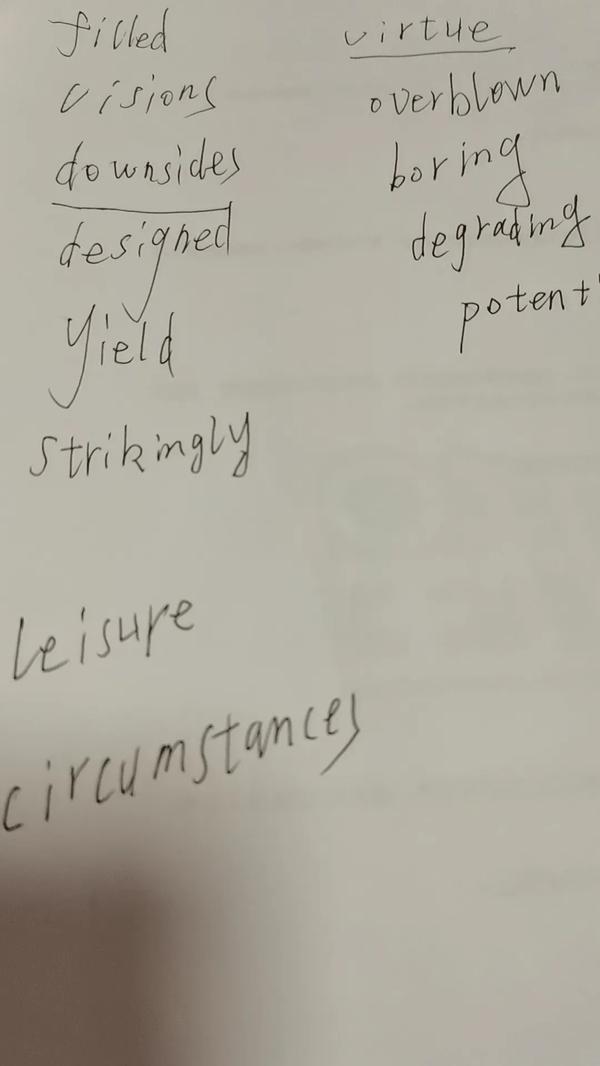 filled
visions
downsides
designed
yield
strikingly
leisure
circumstances
virtue
overblown
boring
degrading
potent